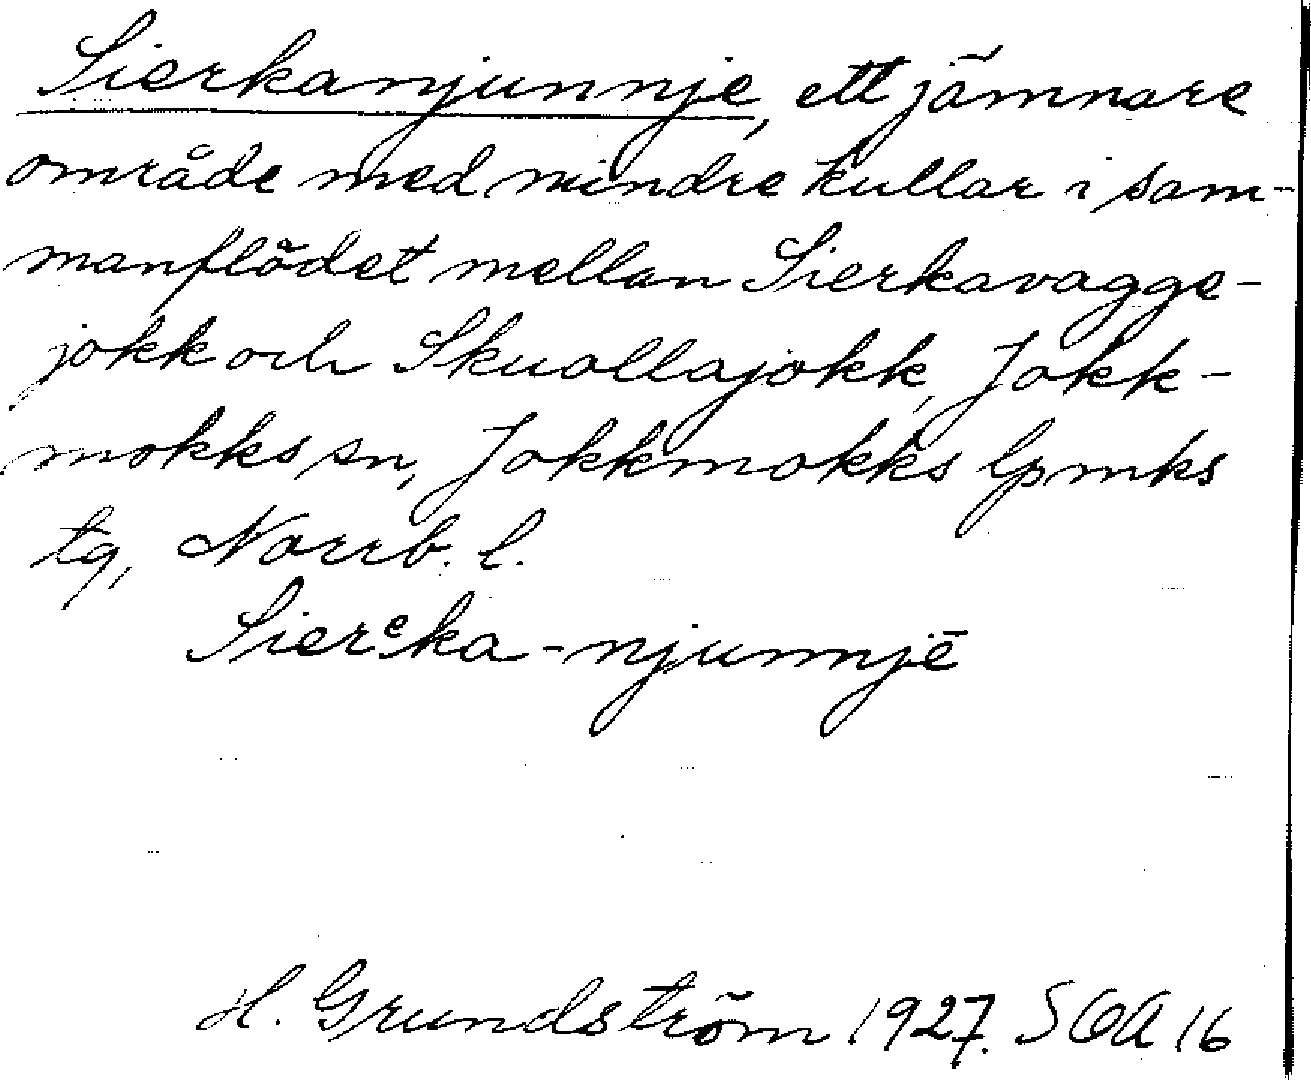 Sierkanjunnje, ett jämnare
område med mindre kullar i sam-
manflödet mellan Sierkavagge-
jokk och Skuollajokk, Jokk-
mokks sn, Jokkmokks lpmks
tg, Norrb. l.
Sierᵉka-njunnjē
H. Grundström 1927. SOA 16